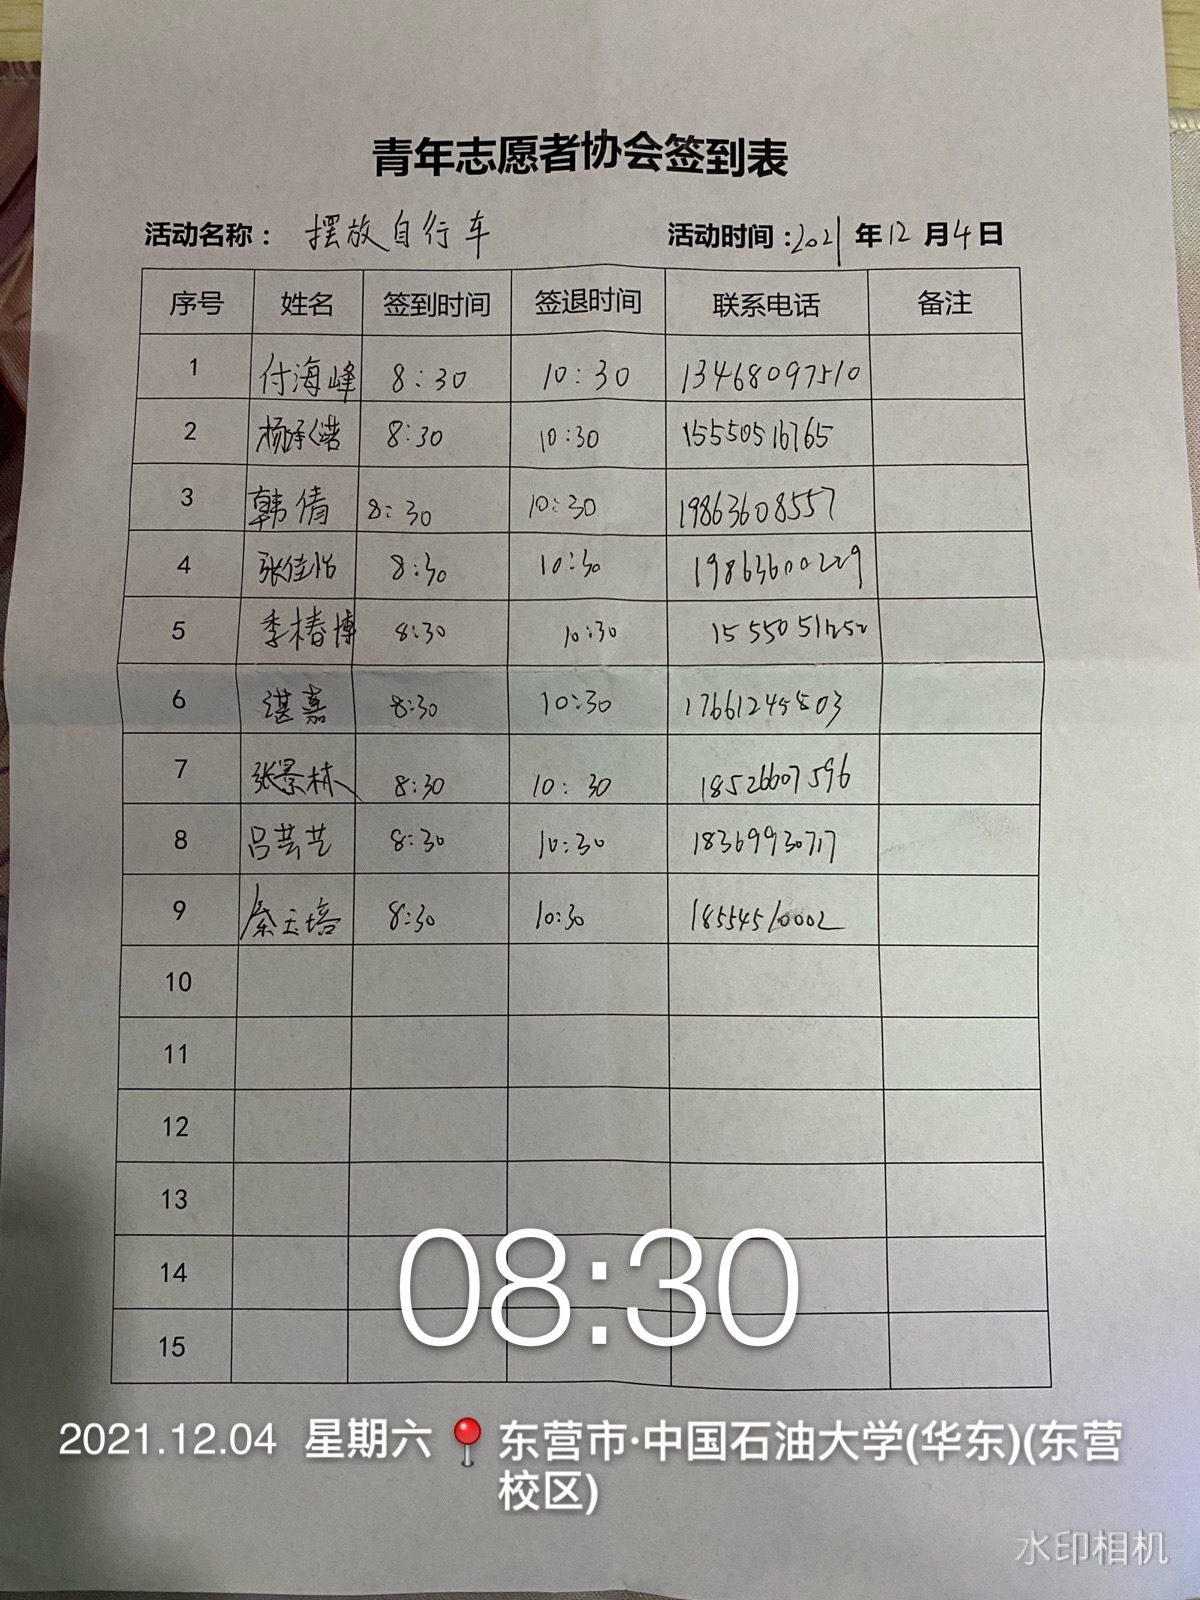 青年志愿者协会签到表
活动名称： 摆放自行车 活动时间：2021年12月4日
序号 姓名 签到时间 签退时间 联系电话 备注
1 付海峰 8:30 10:30 13468097510
2 8:30 10:30 15550516765
3 韩倩 8:30 10:30 19863608557
4 张佳怡 8:30 10:30 19863600229
5 李椿博 8:30 10:30
6 谌嘉 8:30 10:30 17661245803
7 张景林 8:30 10:30 18526607596
8 吕芸艺 8:30 10:30 18369930717
9 秦玉培 8:30 10:30 18554510002
10
11
12
13
14
15
08:30
2021.12.04 星期六 东营市·中国石油大学(华东)(东营
校区)
水印相机